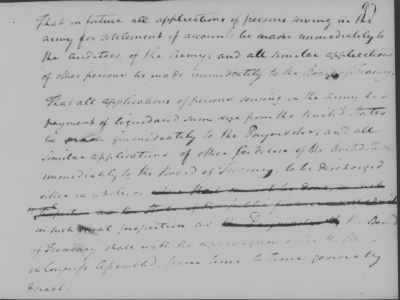 97
That in future all applications of persons serving in the
army for settlement of accounts be made immediately to
the auditors of the army, and all similar applications
of other persons be made immediately to the Board of Treasury.
That all applications of persons serving in the army for
payment of liquidated sums due from the United States
be made immediately to the Paymaster, and all
similar applications of other Creditors of the United States
immediately to the Board of Treasury, to be discharged
either in whole, or
in such equal proportion as the Board
of Treasury shall with the approbation of the U. States
in Congress Assembled, from time to time generally
direct.